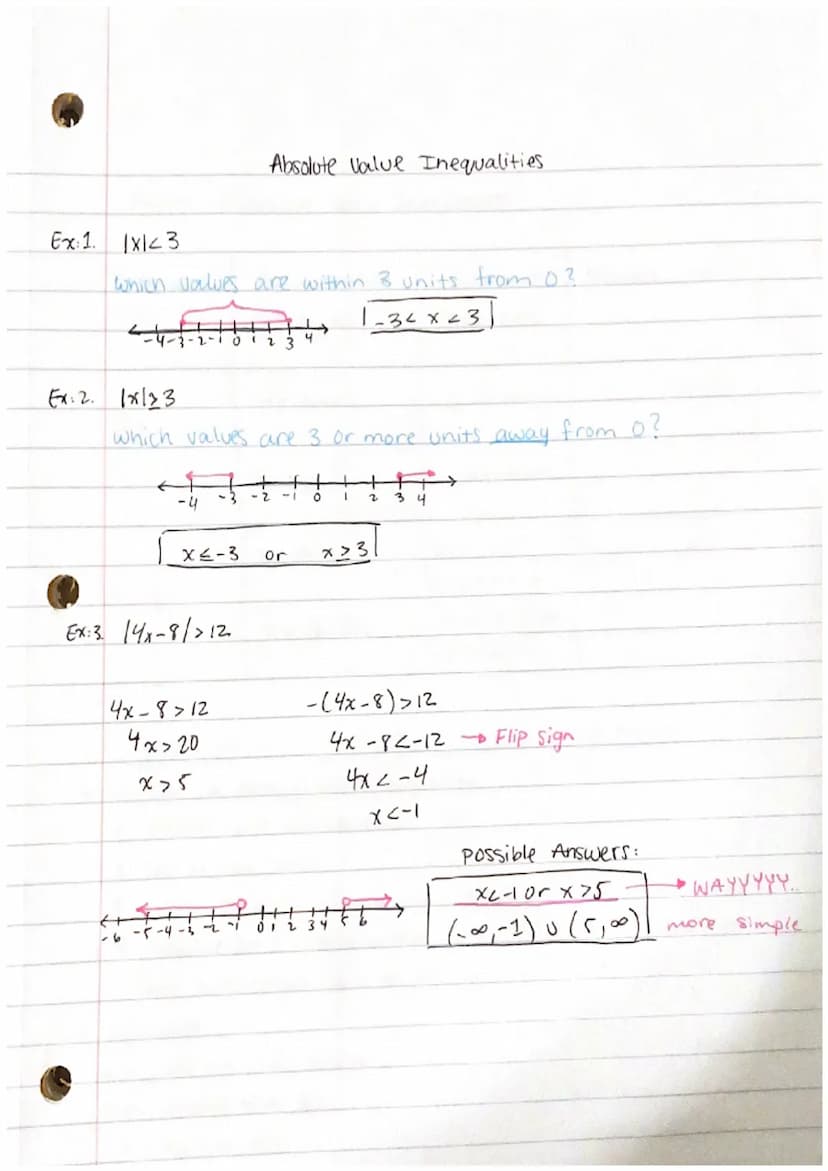 Absolute Value Inequalities
Ex:1. |x|<3
which values are within 3 units from 0?
-4 -3 -2 -1 0 1 2 3 4
-3 < x < 3
Ex:2. |x|≥3
which values are 3 or more units away from 0?
-4 -3 -2 -1 0 1 2 3 4
x ≤ -3 or x ≥ 3
Ex:3. |4x-8|>12
4x-8>12 -(4x-8)>12
4x>20 4x-8<-12 → Flip sign
x>5 4x<-4
x<-1
Possible Answers:
x<-1 or x>5 → WAYYYYY..
-6 -5 -4 -3 -2 -1 0 1 2 3 4 5 6
(-∞,-1) ∪ (5,∞) more simple